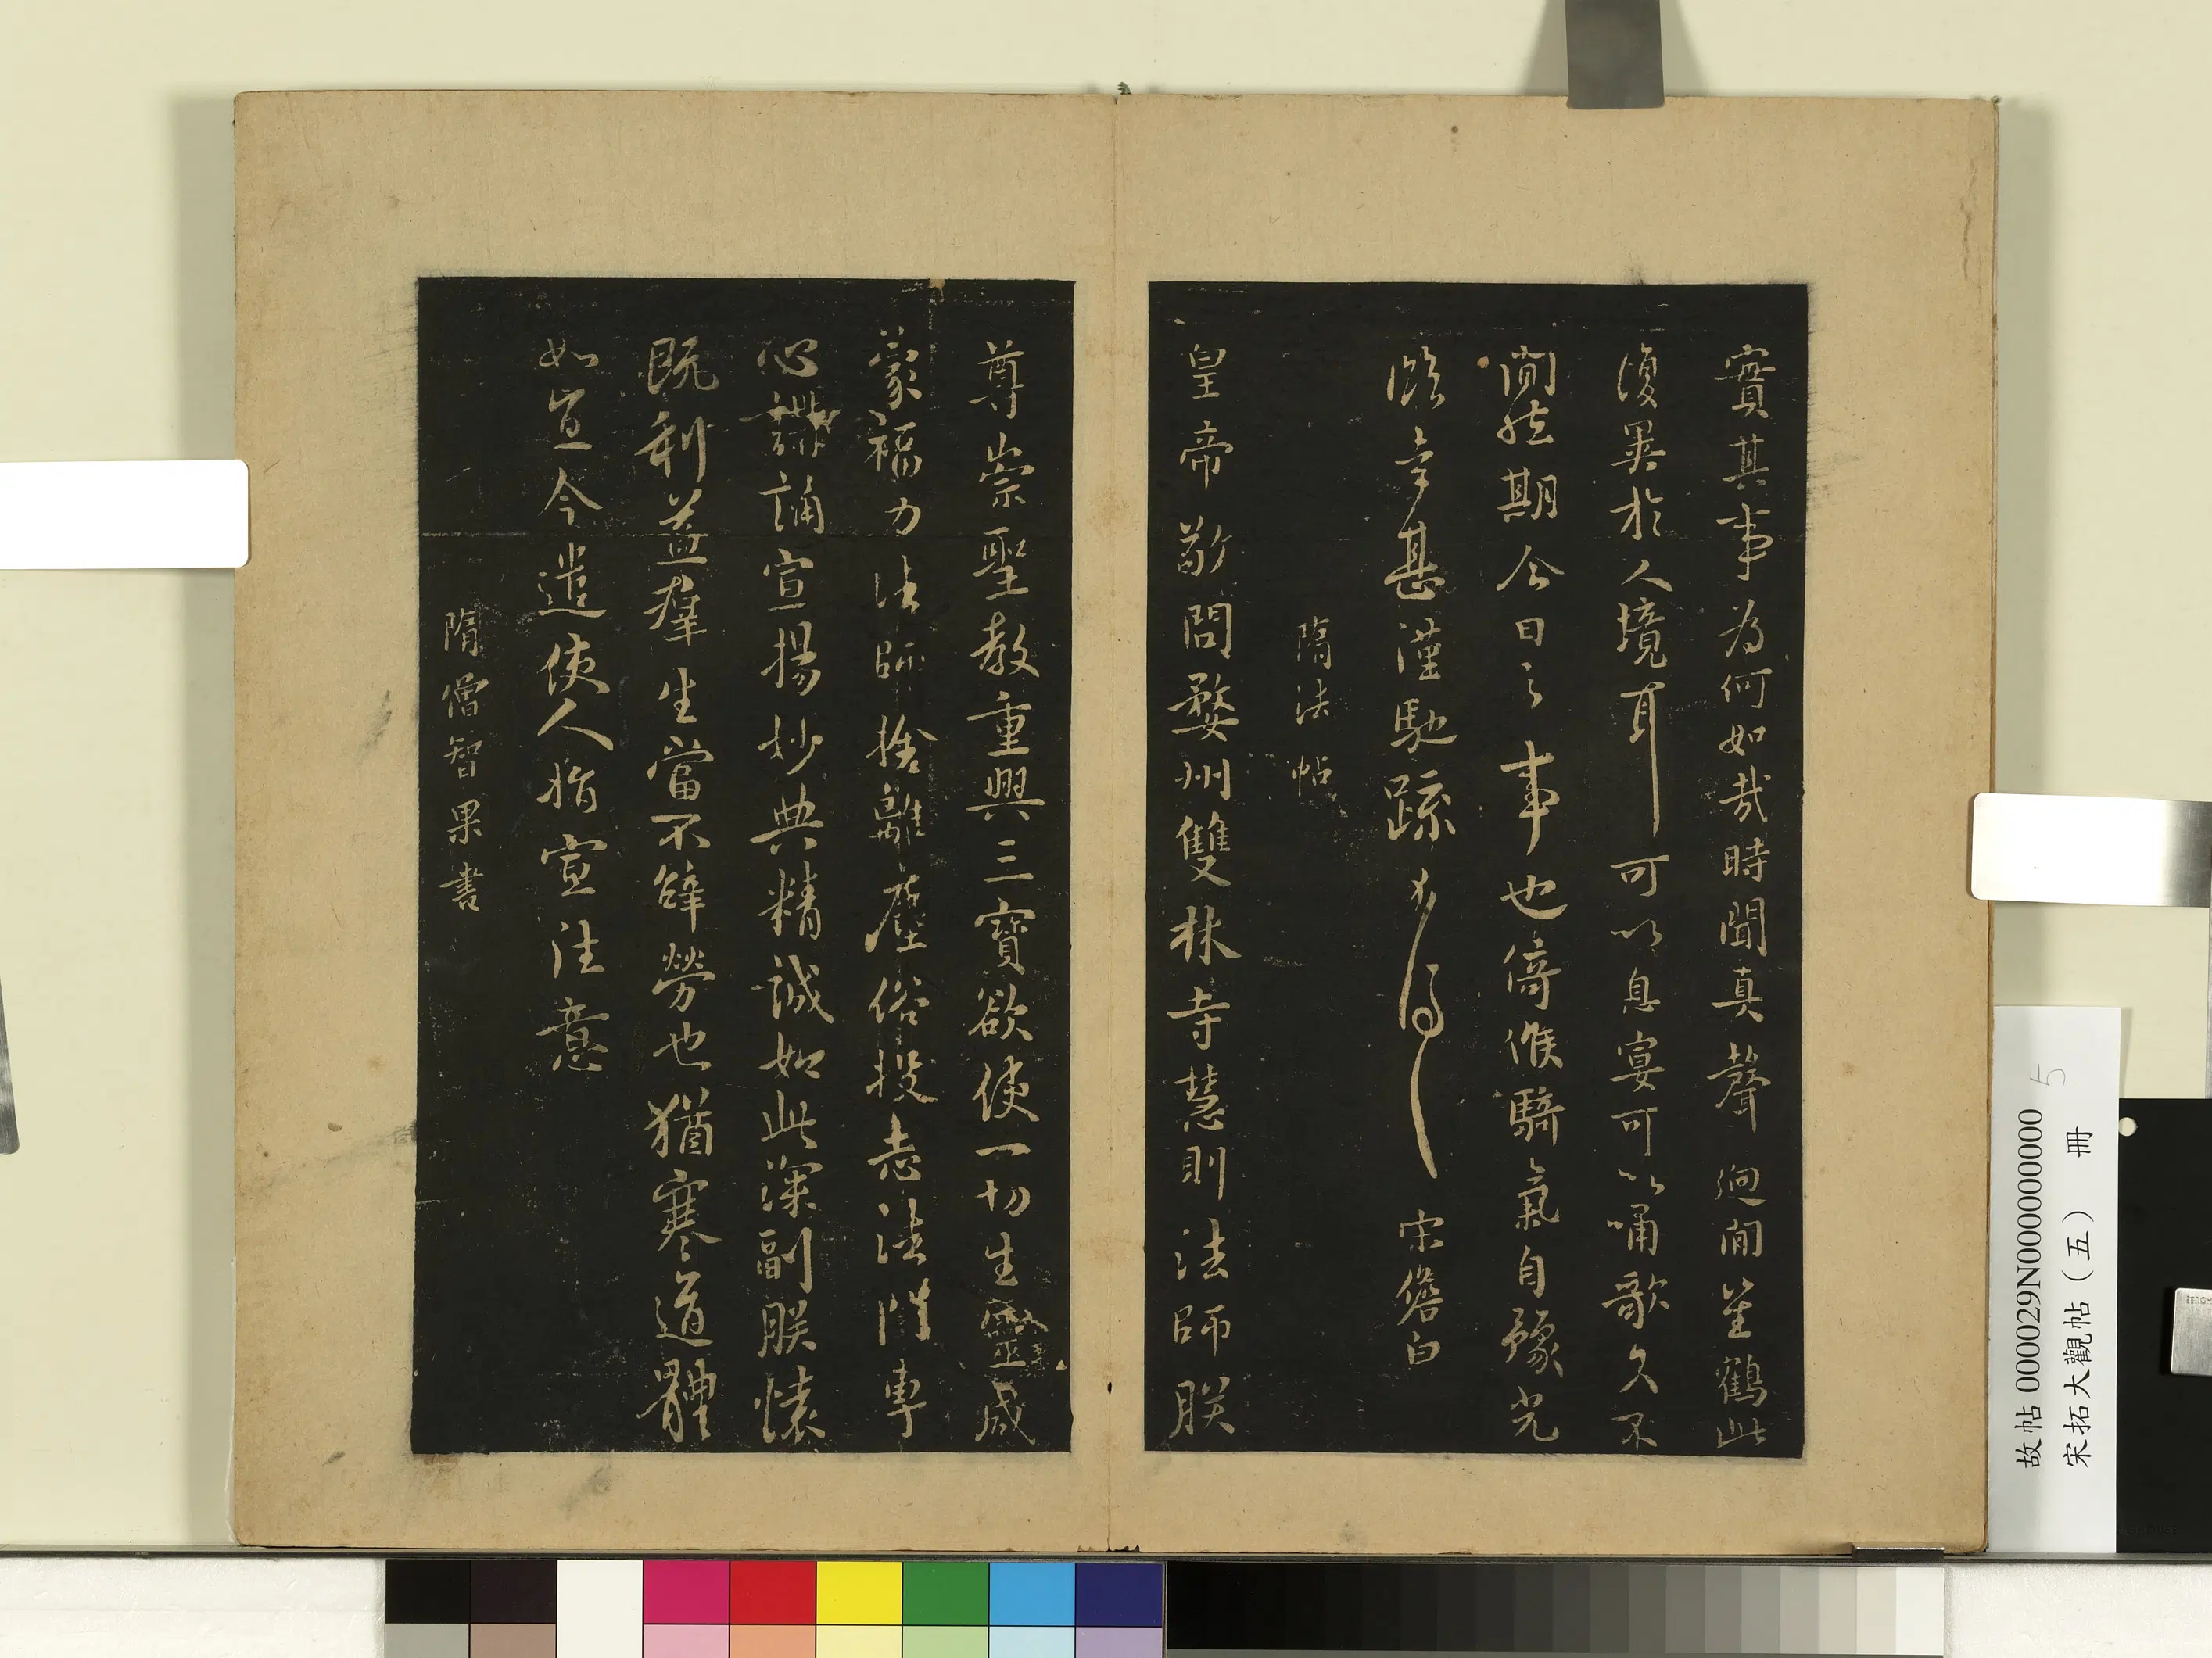 實其事為何如哉時聞真聲迴間笙鶴此
復異於人境耳可以息宴可以誦歌久不
間然期今日之事也倚候騎氣自豫光
臨幸甚謹馳疏不得 宋儋白
隋法帖
皇帝敬問婺州雙林寺慧則法師朕
尊崇聖教重興三寶欲使一切生靈咸
蒙福力法師捨離塵俗投志法門專
心講誦宣揚妙典精誠如此深副朕懷
既利益群生當不辭勞也猶寒道體
如宜今遣使人指宣往意
隋僧智果書
故帖 000029N000000000 5
宋拓大觀帖（五） 冊